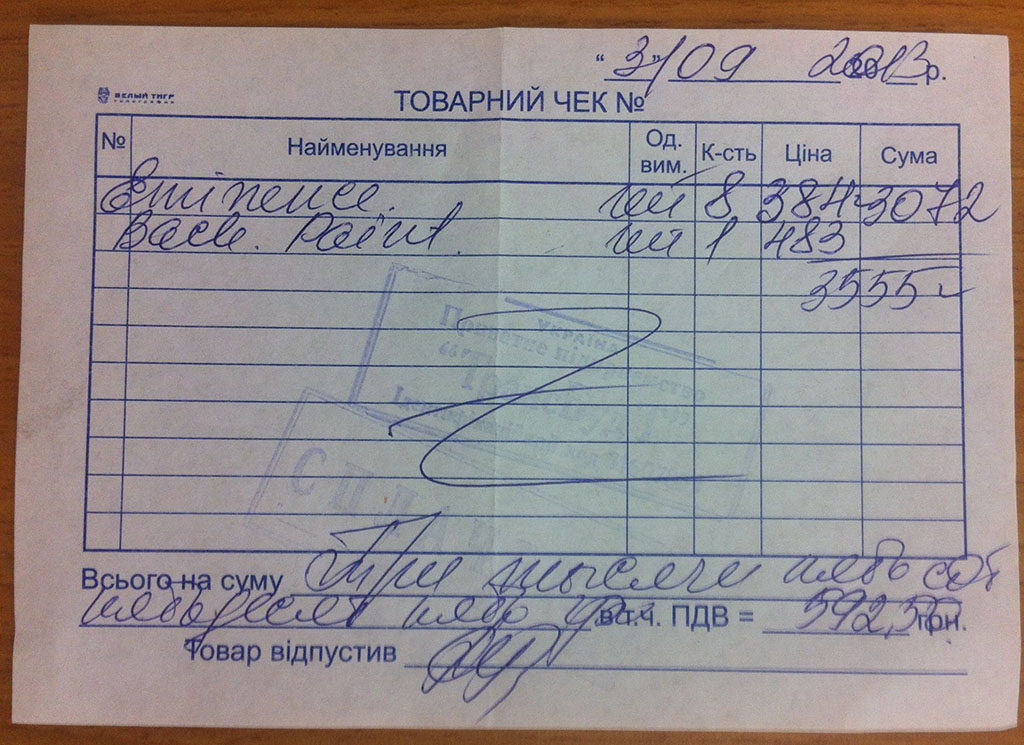 "3" 09 2013 р.
БЕЛЫЙ ТИГР
ТИПОГРАФИЯ
ТОВАРНИЙ ЧЕК №
№ Найменування Од. вим. К-сть Ціна Сума
Eminence. шт 8 384- 3072
Back. Paint. шт 1 483
3555-
УКРАЇНА
Приватне підприємство
СПЛАЧЕНО
Всього на суму Три тысячи пятьсот
пятьдесят пять гр. в т.ч. ПДВ = 592,50 грн.
Товар відпустив